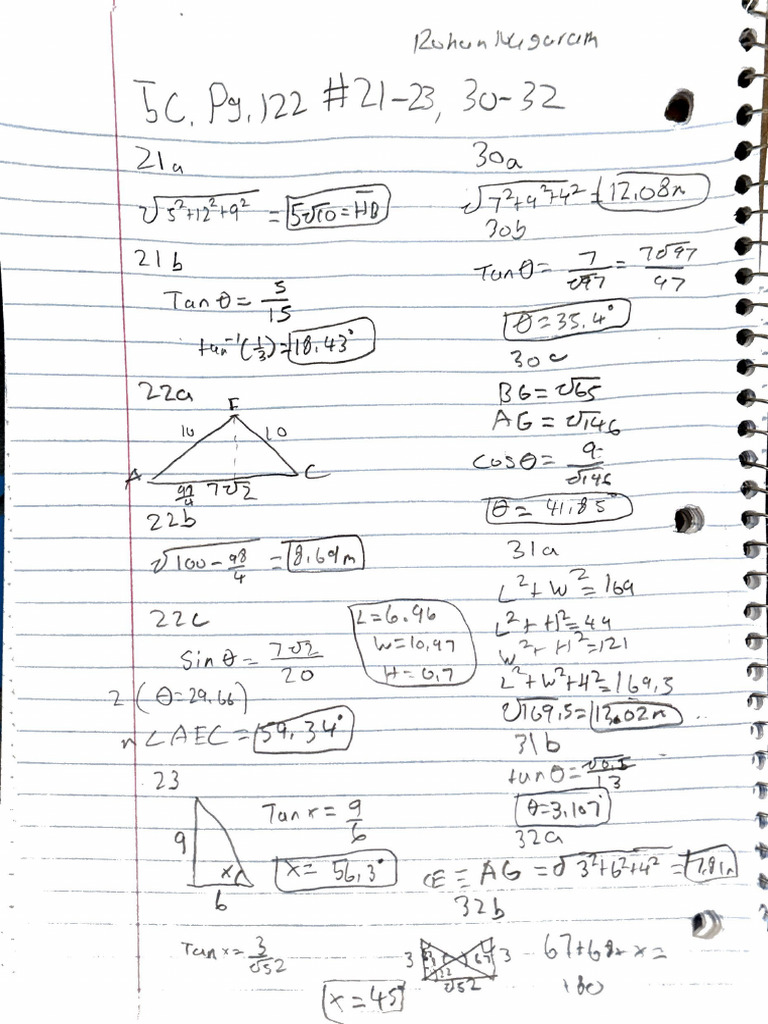 Rohan Nagaram
5C. Pg. 122 #21-23, 30-32
21a
√5²+12²+9² = 5√10 = HB
21b
Tan θ = 5/15
tan⁻¹(1/3) = 18.43°
22a
E
10 10
A C
98/4 7√2
22b
√100 - 98/4 = 8.69m
22c
Sin θ = 7√2/20
2 (θ=29.66)
m∠AEC = 59.34°
23
9
x
6
Tan x = 9/6
x = 56.3°
L=6.96
W=10.97
H=0.7
30a
√7²+9²+4² = 12.08m
30b
Tan θ = 7/√97 = 7√97/97
θ = 35.4°
30c
BG = √65
AG = √146
cos θ = 9/√146
θ = 41.85°
31a
L²+W²=169
L²+H²=49
W²+H²=121
L²+W²+H²=169.5
√169.5 = 13.02m
31b
tan θ = √0.5/13
θ=3.107°
32a
CE = AG = √3²+6²+4² = 7.81m
32b
Tan x = 3/√52
3 67 3
22
√52
67+68+x=
180
x = 45°